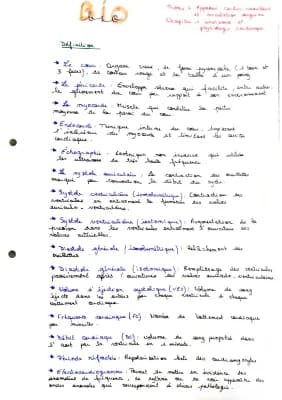 BIO
bio
Thème 2: Appareil cardio-vasculaire
et circulation sanguine
Chapitre 1: anatomie et
physiologie cardiaque
Définition
→ Le cœur: Organe creux, de forme pyramidale (1 base et
3 faces), de couleur rouge et la taille d'un poing
→ Le péricarde: Enveloppe séreuse qui facilite, entre autre,
le glissement du cœur par rapport à son environnement
→ Le myocarde: Muscle qui constitue la partie
moyenne de la paroi du cœur
→ Endocarde: Tunique interne du cœur, tapissant
l'intérieur du myocarde et limitant les cavités
cardiaques.
→ Échographie: technique non invasive qui utilise
les ultrasons de très haute fréquence
→ La systole auriculaire: La contraction des oreillettes
marque, par convention le début du cycle
→ Systole ventriculaire (isovolumétrique): Contraction des
ventricules en entrainant la fermeture des valves
auriculo-ventriculaires.
→ Systole ventriculaire (isotonique): Augmentation de la
pression dans les ventricules entrainant l'ouverture des
valves artérielles.
→ Diastole générale (isovolumétrique): Relâchement des
oreillettes
→ Diastole générale (isotonique): Remplissage des ventricules
passivement après l'ouverture des valves auriculo-ventriculaires
→ Volume d'éjection systolique (VES): Volume de sang
éjecté dans les artères par chaque ventricule à chaque
battement cardiaque
→ Fréquence cardiaque (FC): Nombre de battement cardiaque
par minute.
→ Débit cardiaque (DC): volume de sang propulsé dans
l'aorte par le ventricule en 1 minute.
→ Période réfractaire: Repolarisation lente des cardiomyocytes
→ Electrocardiogramme: Permet de mettre en évidence les
anomalies de fréquence, de rythme ou de voir apparaître des
ondes anormales qui correspondent à divers pathologies.